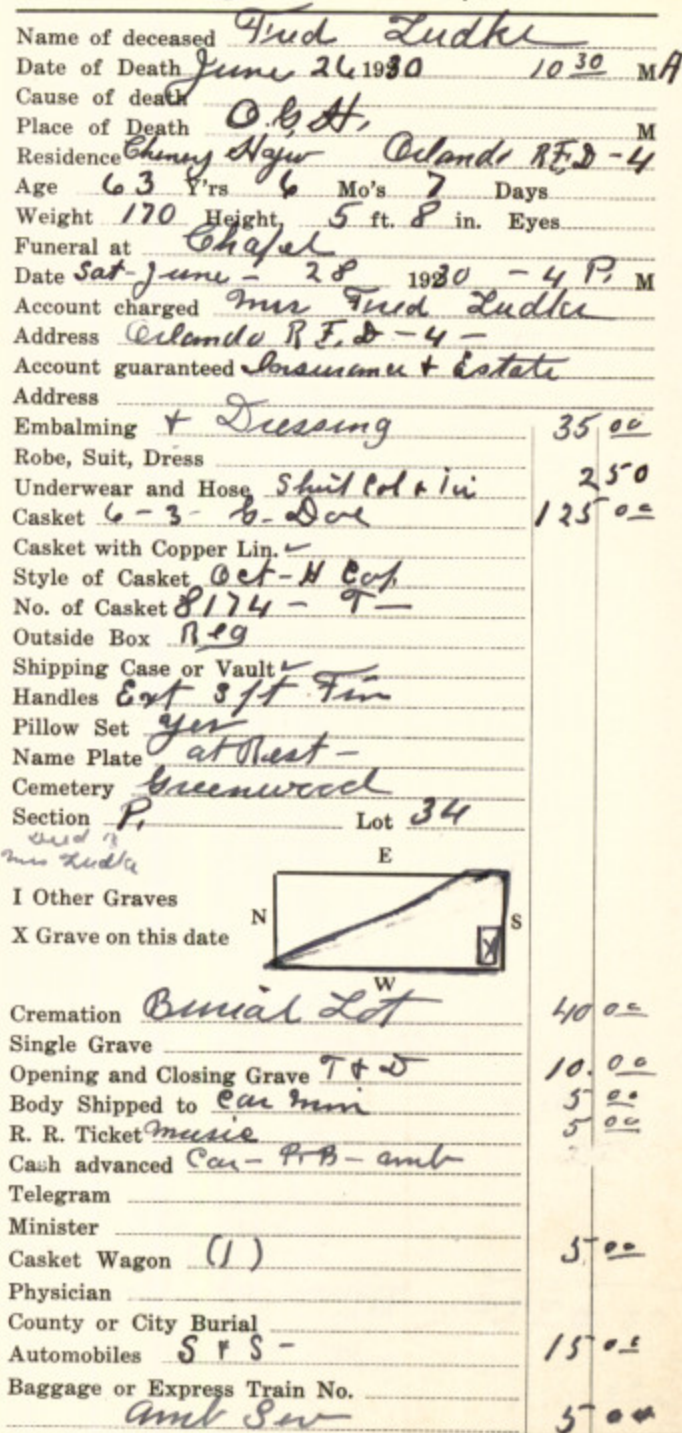 Name of deceased Fred Ludke
Date of Death June 26 1930 10 30 M A
Cause of death
Place of Death O.G.H. M
Residence Cheney Orlando R.F.D - 4
Age 63 Y'rs 6 Mo's 7 Days
Weight 170 Height, 5 ft. 8 in. Eyes
Funeral at Chapel
Date Sat - June - 28 1930 - 4 P. M
Account charged Mrs Fred Ludke
Address Orlando R.F.D - 4 -
Account guaranteed Insurance + Estate
Address
Embalming + Dressing 35 00
Robe, Suit, Dress
Underwear and Hose Shirt Col + Tie 2 50
Casket 6 - 3 - 125 00
Casket with Copper Lin. ✓
Style of Casket Oct - H Cop
No. of Casket 8174 - T -
Outside Box Reg
Shipping Case or Vault ✓
Handles Ext 3 ft Fin
Pillow Set yes
Name Plate at Rest -
Cemetery Greenwood
Section P. Lot 34
Mrs Ludke
E
I Other Graves
N S
X Grave on this date X
W
Cremation Burial Lot 40 00
Single Grave
Opening and Closing Grave T + D 10. 00
Body Shipped to Car Min 5 00
R. R. Ticket Music 5 00
Cash advanced Car - P.B - amb
Telegram
Minister
Casket Wagon (1) 5 00
Physician
County or City Burial
Automobiles S + S - 15 00
Baggage or Express Train No.
amb Ser 5 00